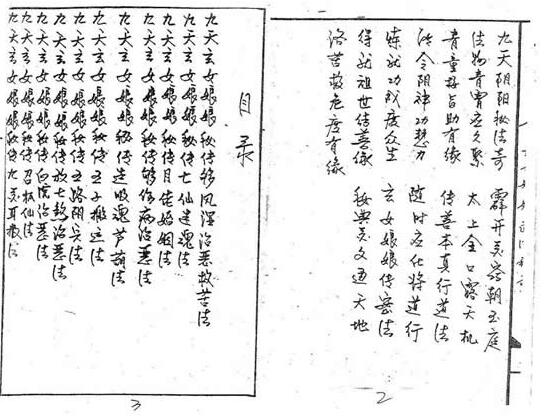 九天阴阳秘法奇 开灵朝玉庭
法青霄久聚 太上金口露天机
青童指占助有缘 传善本真行道法
法令阴神功慧力 随时应化将道行
炼就功成度众生 玄女娘娘传密法
得就祖世传善缘 秘典灵文通天地
苦救危度有缘
2
目录
九天玄女娘娘秘传治恶救苦法
九天玄女娘娘秘传七仙迷魂法
九天玄女娘娘秘传月佬婚姻法
九天玄女娘娘秘传伤病治恶法
九天玄女娘娘秘传造吸魂芦葫法
九天玄女娘娘秘传五子搬运法
九天玄女娘娘秘传五路阴兵法
九天玄女娘娘秘传放七煞治恶法
九天玄女娘娘秘传白虎治恶法
九天玄女娘娘秘传召板仙法
九天玄女娘娘秘传九灵耳报法
3